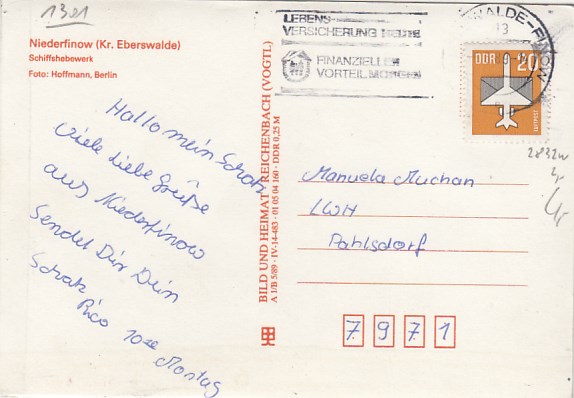 1301
Niederfinow (Kr. Eberswalde)
Schiffshebewerk
Foto: Hoffmann, Berlin
Hallo mein Schatz
Viele liebe Grüße
aus Niederfinow
Sendet Dir Dein
Schatz
Rico
Montag
BILD UND HEIMAT REICHENBACH (VOGTL)
A 1/B 5/89 · IV-14-483 · 01 05 04 160 · DDR 0,25 M
LEBENS-
VERSICHERUNG HEUTE
FINANZIELLER
VORTEIL MORGEN
DDR 20
LUFTPOST
Manuela Muchan
LWH
Pahlsdorf
7971